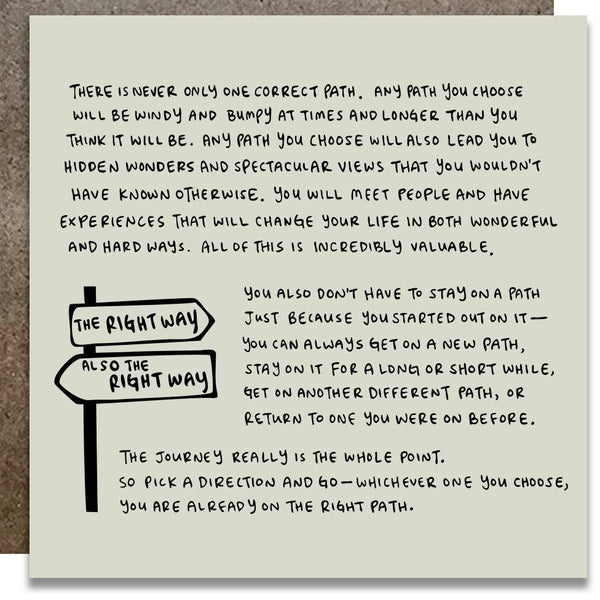 THERE IS NEVER ONLY ONE CORRECT PATH. ANY PATH YOU CHOOSE
WILL BE WINDY AND BUMPY AT TIMES AND LONGER THAN YOU
THINK IT WILL BE. ANY PATH YOU CHOOSE WILL ALSO LEAD YOU TO
HIDDEN WONDERS AND SPECTACULAR VIEWS THAT YOU WOULDN'T
HAVE KNOWN OTHERWISE. YOU WILL MEET PEOPLE AND HAVE
EXPERIENCES THAT WILL CHANGE YOUR LIFE IN BOTH WONDERFUL
AND HARD WAYS. ALL OF THIS IS INCREDIBLY VALUABLE.
THE RIGHT WAY
ALSO THE
RIGHT WAY
YOU ALSO DON'T HAVE TO STAY ON A PATH
JUST BECAUSE YOU STARTED OUT ON IT—
YOU CAN ALWAYS GET ON A NEW PATH,
STAY ON IT FOR A LONG OR SHORT WHILE,
GET ON ANOTHER DIFFERENT PATH, OR
RETURN TO ONE YOU WERE ON BEFORE.
THE JOURNEY REALLY IS THE WHOLE POINT.
SO PICK A DIRECTION AND GO—WHICHEVER ONE YOU CHOOSE,
YOU ARE ALREADY ON THE RIGHT PATH.